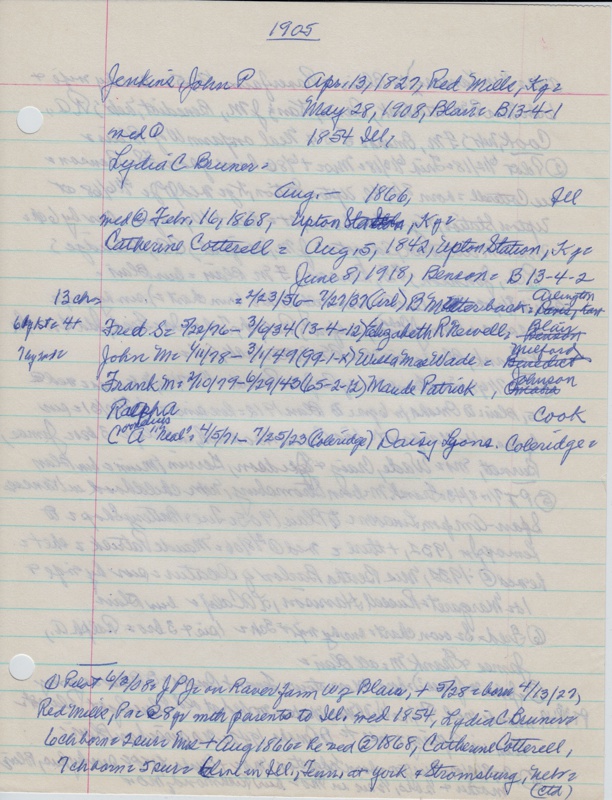 1905
Jenkins, John P. Apr. 13, 1827, Red Mills, Ky=
May 28, 1908, Blair = B 13-4-1
med ① 1854 Ill,
Lydia C Bruner =
Aug. — 1866, Ill
med ② Febr. 16, 1868, Upton Station, Ky=
Catherine Cotterell = Aug. 5, 1842, Upton Station, Ky=
June 8, 1918, Benson = B 13-4-2
13 chrs = 2/23/56 - 7/27/37 (Arl) B Arlington
6 by 1st = 4+ Fred S = 5/22/76 - 3/6/34 (13-4-12) Elizabeth R Newell, Blair
7 by 2nd = John M = 4/11/78 - 3/1/49 (99-1-2) Mae Wade = Milford Benedict
Frank M = 2/10/79 - 6/29/43 (65-2-12) Maude Patrick, Johnson Omaha
Ralph A Cook
C A "Ned" = 4/5/71 - 7/25/23 (Coleridge) Daisy Lyons. Coleridge =
① Pilot 6/3/08 = J P J = on Raver farm W of Blair, + 5/28 = born 4/13/27,
Red Mills, Pa = @ 8 yr with parents to Ill. med 1854, Lydia C Bruner =
6 ch born = 2 surv = Mrs + Aug 1866 = he med ② 1868, Catherine Cotterell,
7 ch born = 5 surv = live in Ill., Tenn, at York + Stromsburg, Nebr =
(ctd)